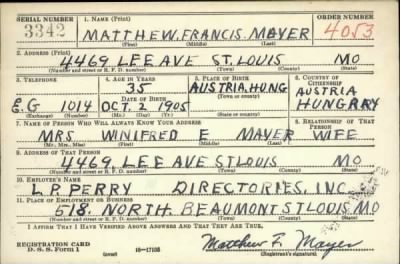 SERIAL NUMBER 1. NAME (Print) ORDER NUMBER
3342 MATTHEW. FRANCIS. MAYER 4053
(First) (Middle) (Last)
2. ADDRESS (Print)
4469 LEE AVE ST. LOUIS MO
(Number and street or R. F. D. number) (Town) (County) (State)
3. TELEPHONE 4. AGE IN YEARS 5. PLACE OF BIRTH 6. COUNTRY OF CITIZENSHIP
35 AUSTRIA, HUNG AUSTRIA
DATE OF BIRTH (Town or county)
E.G 1014 OCT 2 1905 HUNGRAY
(Exchange) (Number) (Mo.) (Day) (Yr.) (State or country)
7. NAME OF PERSON WHO WILL ALWAYS KNOW YOUR ADDRESS 8. RELATIONSHIP OF THAT PERSON
MRS WINIFRED E MAYER WIFE
(Mr., Mrs., Miss) (First) (Middle) (Last)
9. ADDRESS OF THAT PERSON
4469 LEE AVE ST LOUIS MO
(Number and street or R. F. D. number) (Town) (County) (State)
10. EMPLOYER'S NAME
L. P. PERRY DIRECTORIES, INC
11. PLACE OF EMPLOYMENT OR BUSINESS
518, NORTH. BEAUMONT ST LOUIS MO
(Number and street or R. F. D. number) (Town) (County) (State)
I AFFIRM THAT I HAVE VERIFIED ABOVE ANSWERS AND THAT THEY ARE TRUE.
REGISTRATION CARD
D. S. S. Form 1 16-17105 Matthew F. Mayer
(Registrant's signature)